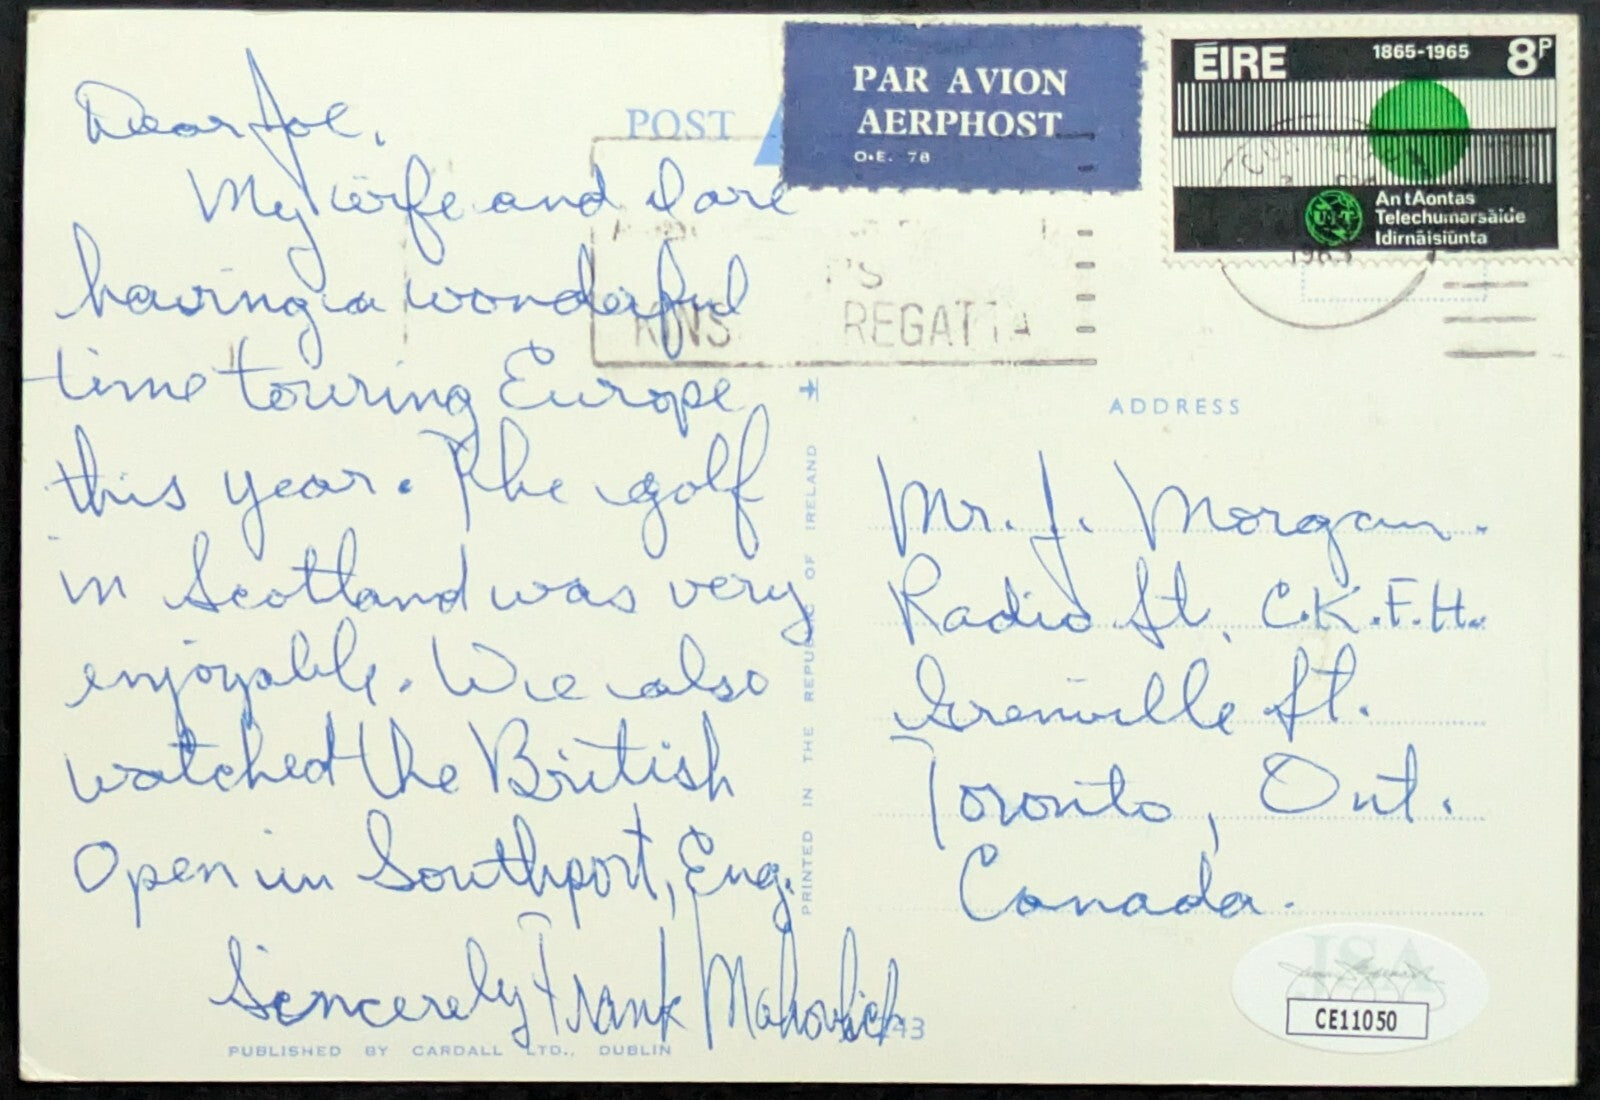 Dear Joe,
My wife and I are
having a wonderful
time touring Europe
this year. The golf
in Scotland was very
enjoyable. We also
watched the British
Open in Southport, Eng.
Sincerely Frank Mahovlich
PUBLISHED BY CARDALL LTD., DUBLIN
43
PRINTED IN THE REPUBLIC OF IRELAND
POST
PAR AVION
AERPHOST
O.E. 78
ÉIRE 1865-1965 8P
An tAontas
Telechumarsáide
Idirnáisiúnta
1965
KINS REGATTA
ADDRESS
Mr. J. Morgan.
Radio St. C.K.F.H.
Grenville St.
Toronto, Ont.
Canada.
JSA
CE11050